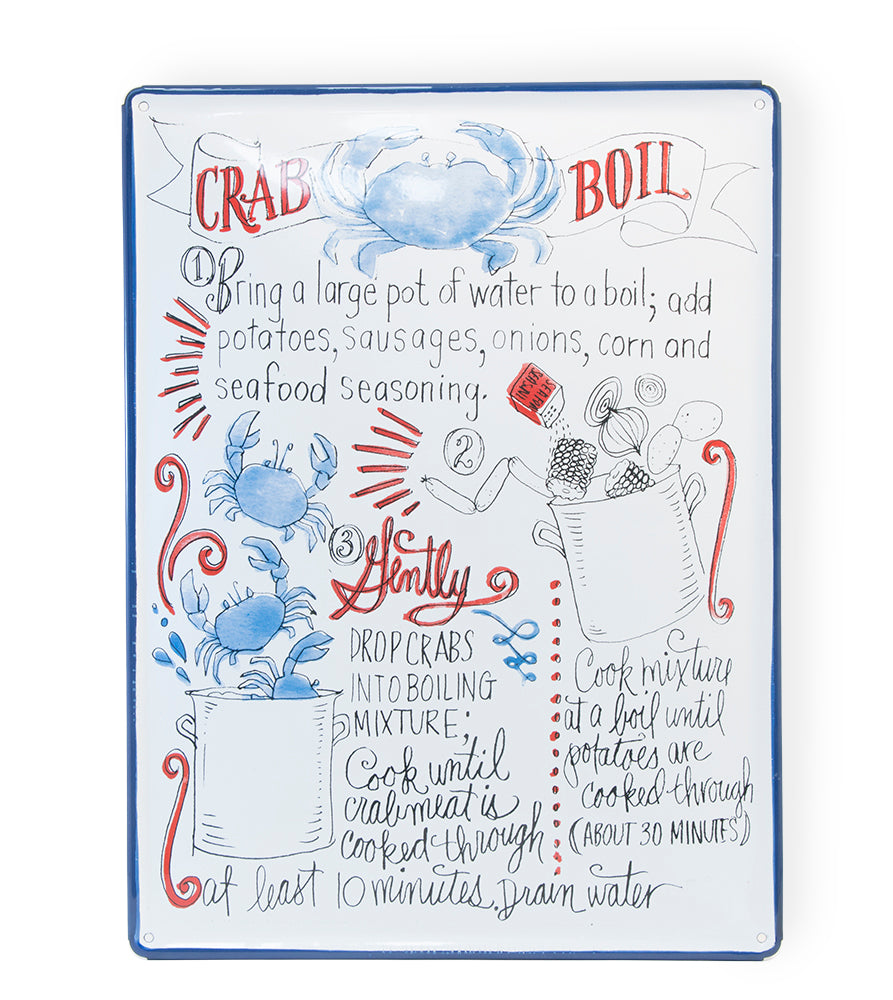 CRAB BOIL
1. Bring a large pot of water to a boil; add
potatoes, sausages, onions, corn and
seafood seasoning.
SEAFOOD
SEASONI
2
Cook mixture
at a boil until
potatoes are
cooked through
(ABOUT 30 MINUTES)
3 Gently
DROP CRABS
INTO BOILING
MIXTURE;
Cook until
crabmeat is
cooked through
at least 10 minutes. Drain water